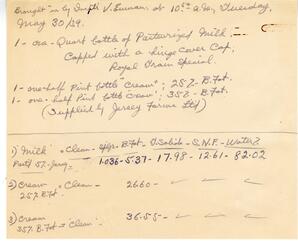 Brought in by Joseph V. Eunan at 10:00 a.m. Tuesday,
May 30/29.
1 - one Quart bottle of Pasteurized Milk -
Capped with a hinge cover Cap,
Royal Train Special.
1 - one-half Pint bottle "Cream", 25% B. Fat.
1 - one-half Pint bottle Cream, 35% B. Fat.
(Supplied by Jersey Farms Ltd)
1) Milk - Clean - SpGr. B.Fat. T. Solids - S.N.F. - Water%
Past'd 5% Jersey 1.036 - 5.37 - 17.98 - 12.61 - 82.02
2) Cream - Clean - 26.60 -
25% B. Fat
3) Cream 36.55 -
35% B. Fat - Clean -